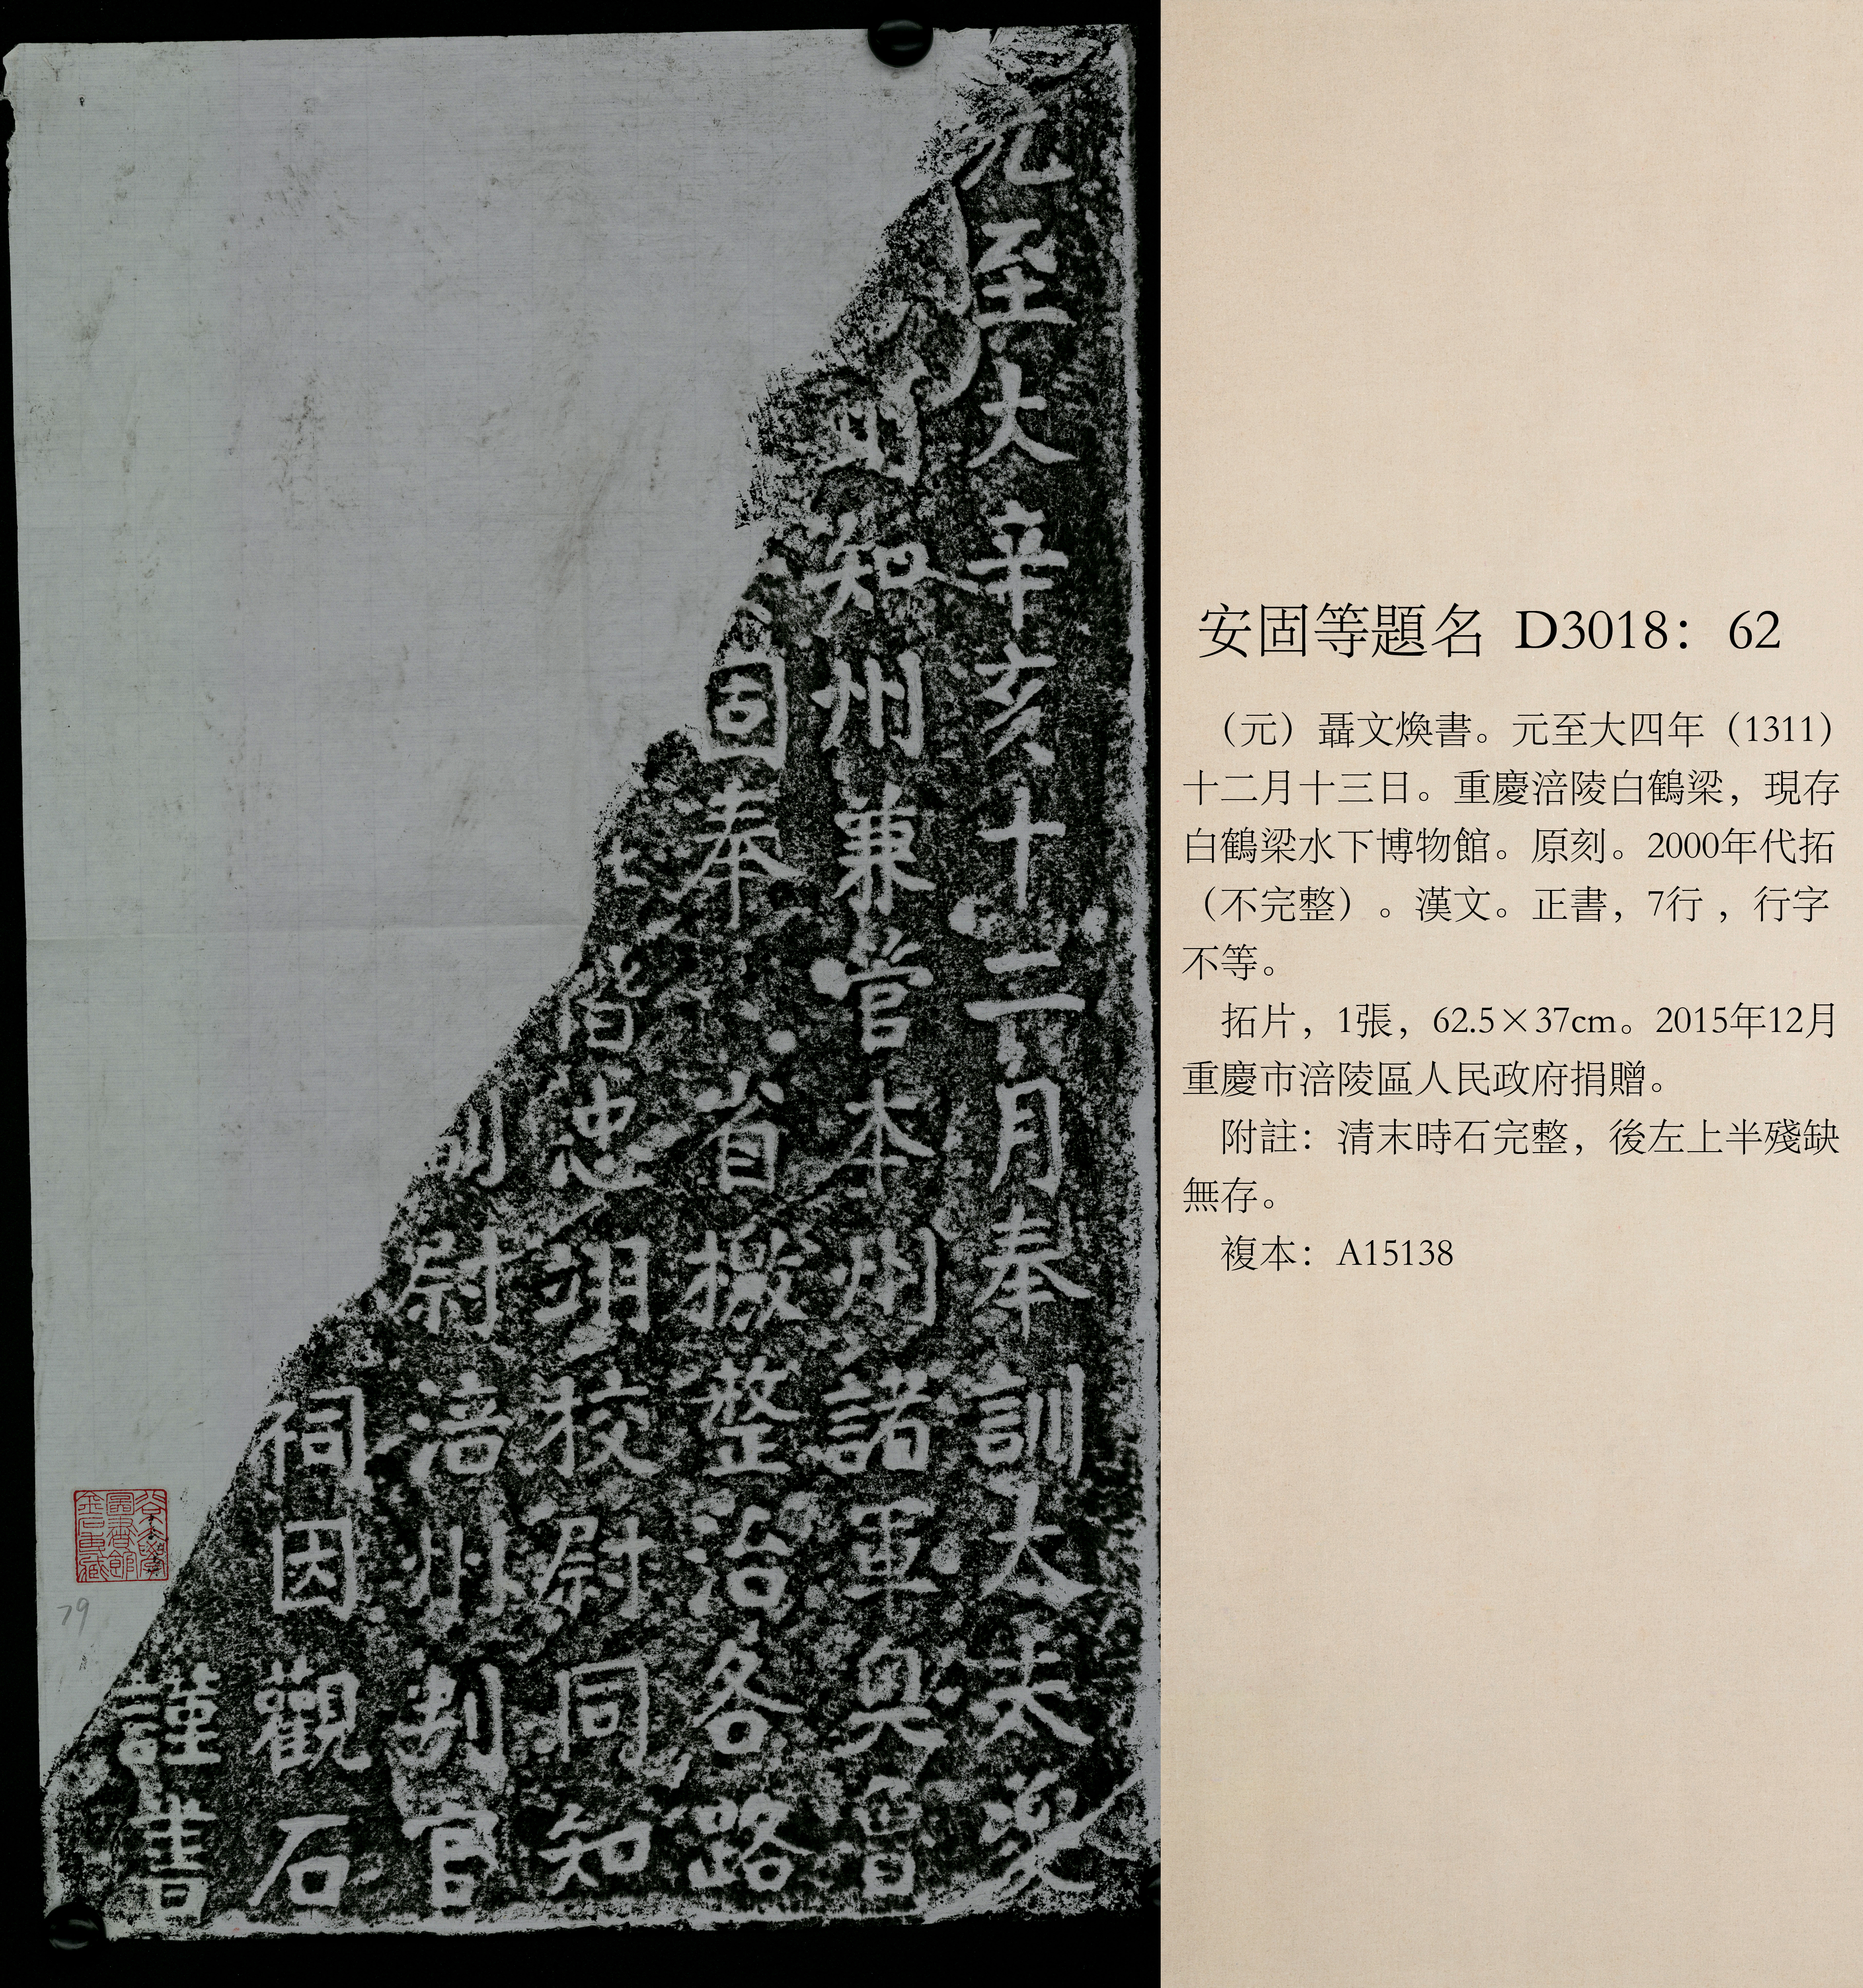 元至大辛亥十二月奉訓大夫
知州兼管本州諸軍奧魯
固奉省檄整治各路
偕忠翊校尉同知
尉涪州判官
祠因觀石
謹書
79
安固等題名 D3018：62
（元）聶文煥書。元至大四年（1311）
十二月十三日。重慶涪陵白鶴梁，現存
白鶴梁水下博物館。原刻。2000年代拓
（不完整）。漢文。正書，7行 ，行字
不等。
拓片，1張，62.5×37cm。2015年12月
重慶市涪陵區人民政府捐贈。
附註：清末時石完整，後左上半殘缺
無存。
複本：A15138